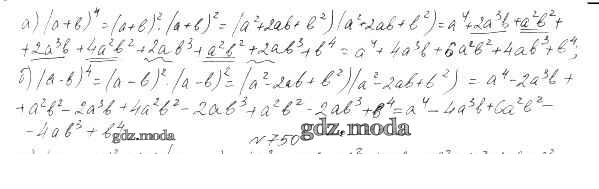 а) (a+b)⁴ = (a+b)²·(a+b)² = (a²+2ab+b²)(a²+2ab+b²) = a⁴+2a³b+a²b²+
+2a³b+4a²b²+2ab³+a²b²+2ab³+b⁴ = a⁴+4a³b+6a²b²+4ab³+b⁴;
б) (a-b)⁴ = (a-b)²·(a-b)² = (a²-2ab+b²)(a²-2ab+b²) = a⁴-2a³b+
+a²b²-2a³b+4a²b²-2ab³+a²b²-2ab³+b⁴ = a⁴-4a³b+6a²b²-
-4ab³+b⁴
gdz.moda
gdz.moda
№750